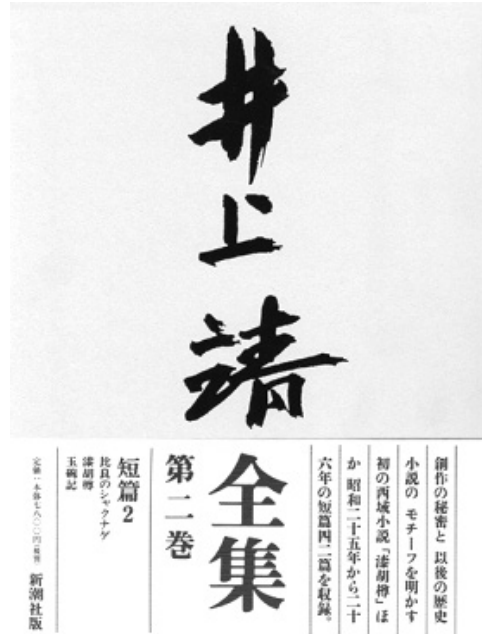 井上靖
創作の秘密と 以後の歴史
小説の モチーフを明かす
初の西域小説「漆胡樽」ほ
か 昭和二十五年から二十
六年の短篇四二篇を収録。
全集
第二巻
短篇2
比良のシャクナゲ
漆胡樽
玉碗記
新潮社版